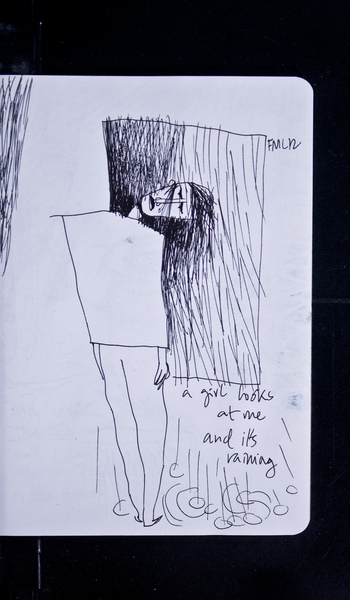 a girl looks
at me
and it's
raining